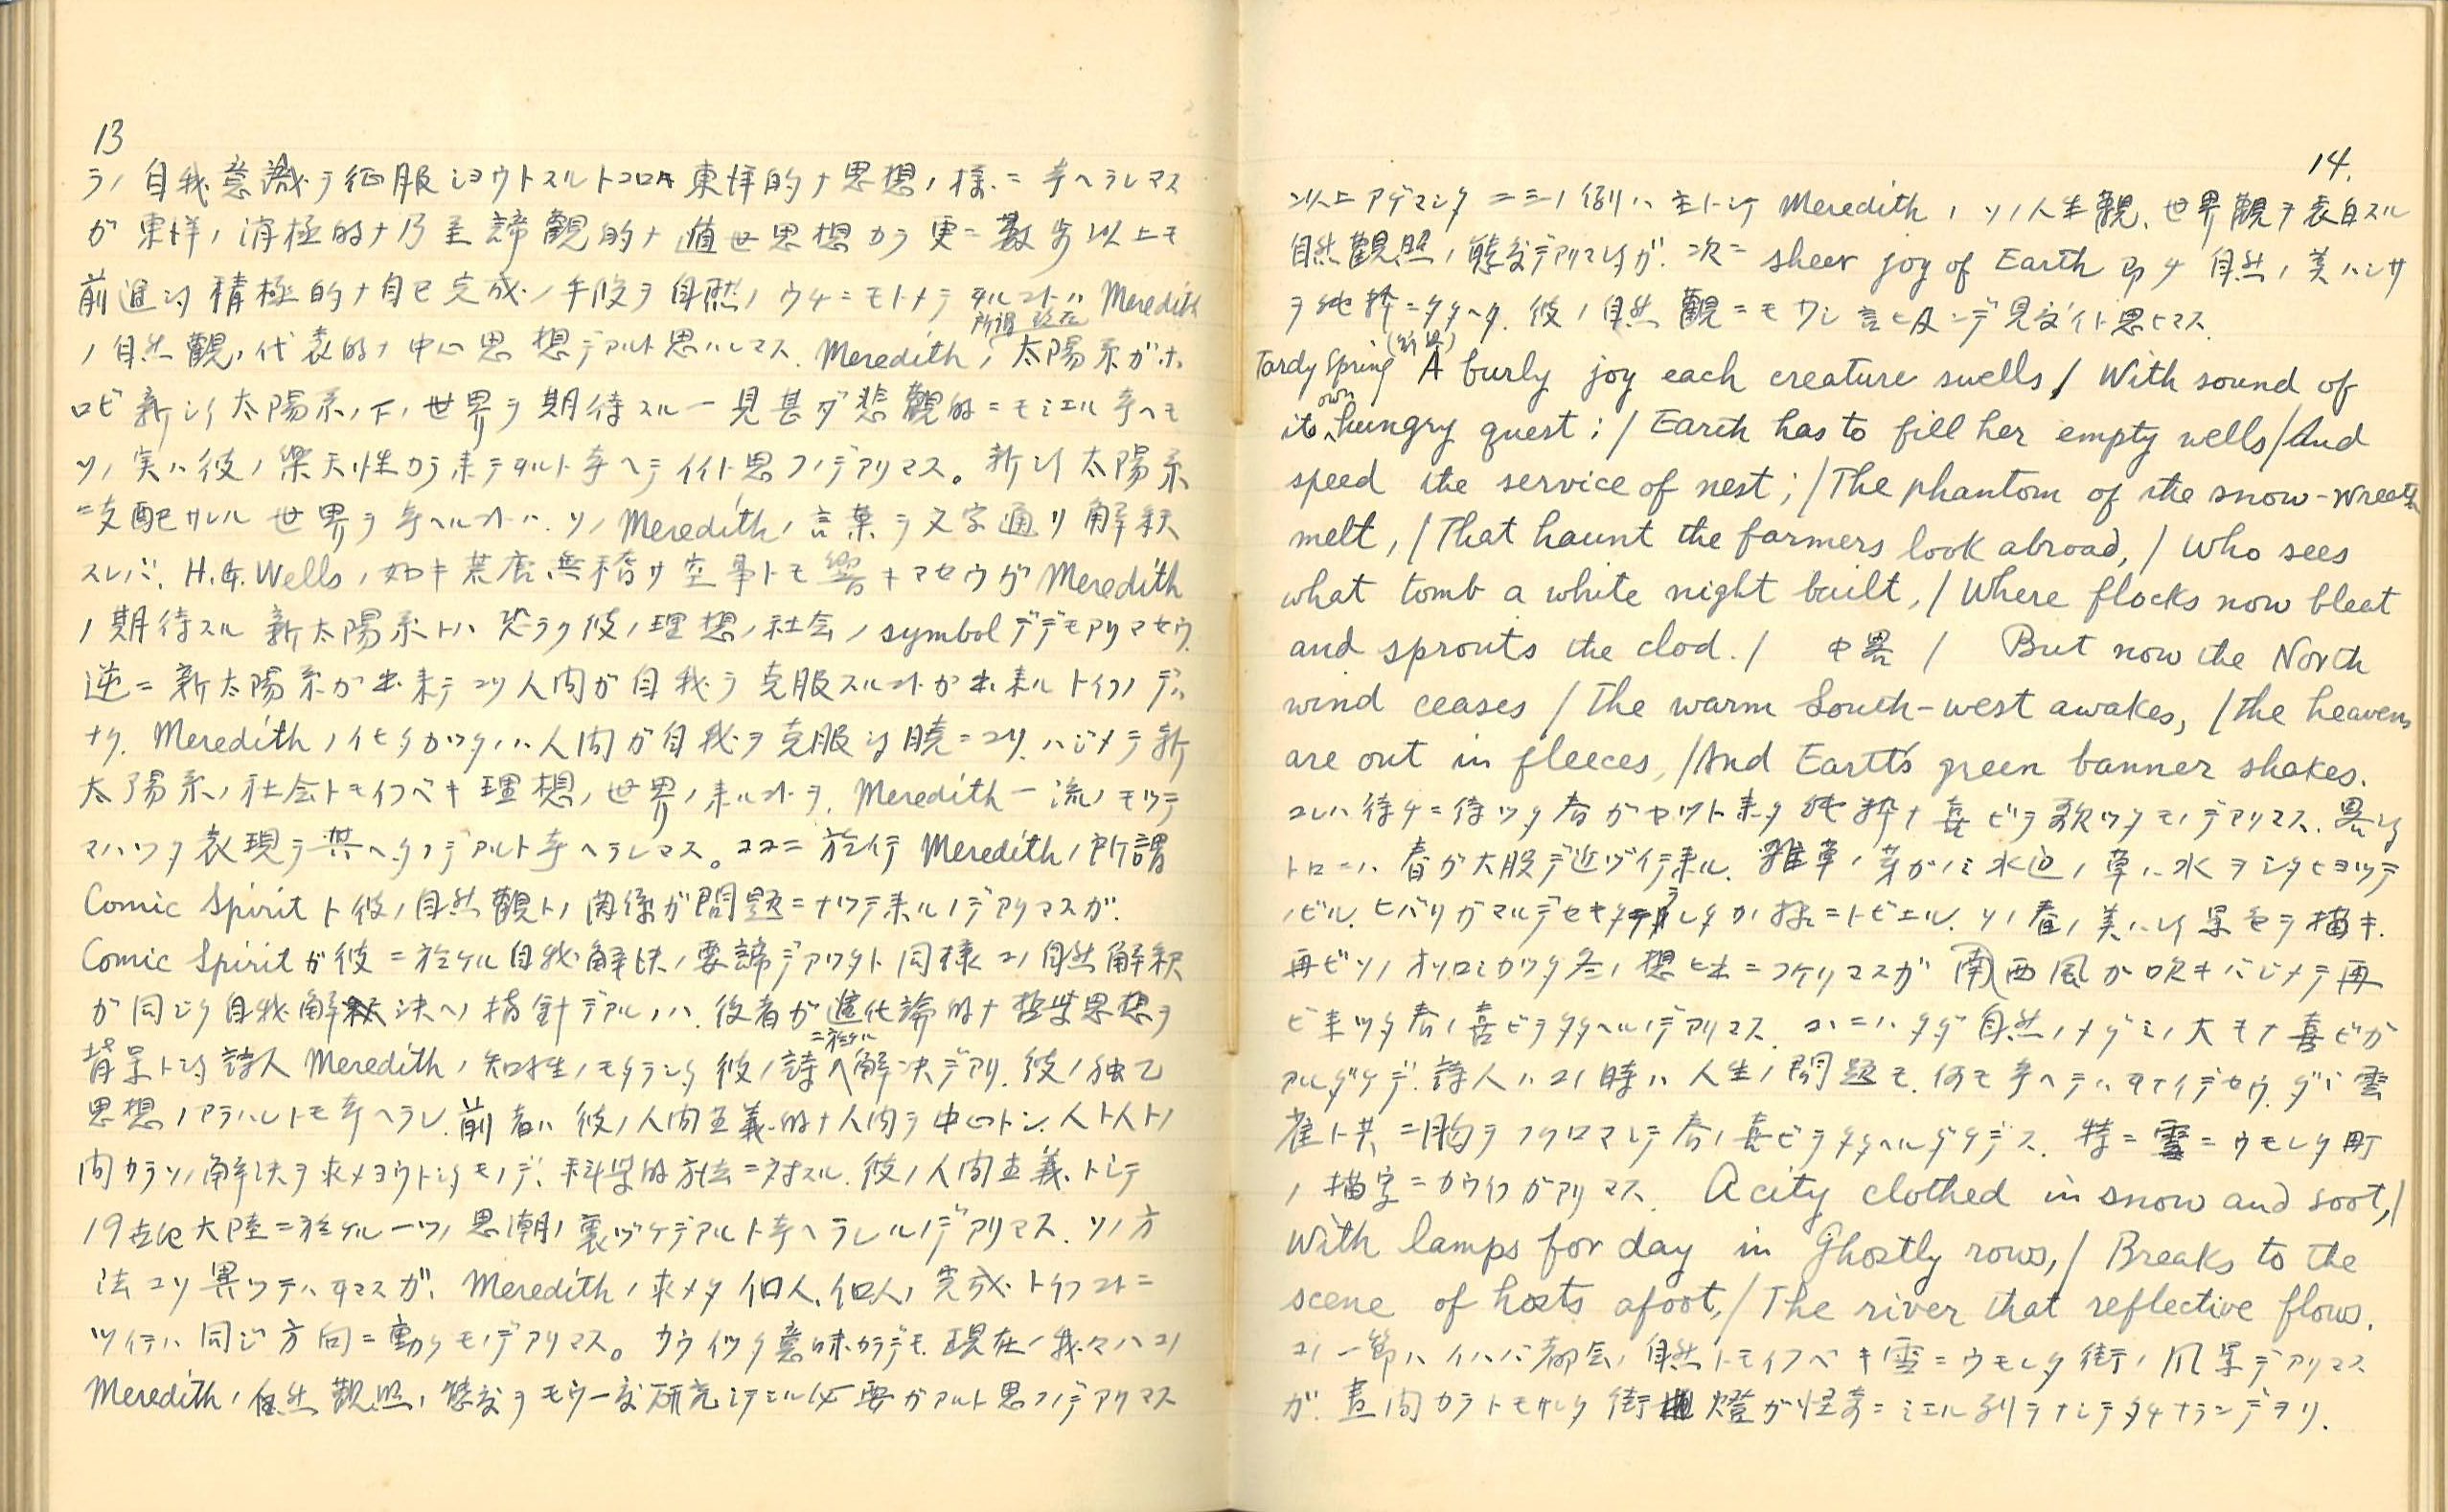 13
ラノ自我意識ヲ征服シヨウトスルトコロハ東洋的ナ思想ノ様ニ考ヘラレマス
ガ東洋ノ消極的ナ乃至諦観的ナ遁世思想カラ更ニ数歩以上モ
前進シタ積極的ナ自己完成ノ手段ヲ自然ノウチニモトメテヰルコトハ Meredith
ノ自然觀ノ代表的ナ中心思想デアルト思ハレマス. Meredithノ太陽系ガホ
所謂 現在
ロビ新シイ太陽系ノ下ノ世界ヲ期待スル一見甚ダ悲觀的ニモミエル考ヘモ
ソノ実ハ彼ノ樂天性カラ来テヰルト考ヘテイイト思フノデアリマス。新シイ太陽系
ニ支配サレル世界ヲ考ヘルコトハ. ソノ Meredithノ言葉ヲ文字通リ解釈
スレバ. H.G. Wellsノ如キ荒唐無稽サ空事トモ響キマセウガ Meredith
ノ期待スル新太陽系トハ恐ラク彼ノ理想ノ社会ノ symbol デデモアリマセウ.
逆ニ新太陽系ガ出来テコソ人間ガ自我ヲ克服スルコトガ出来ルトイフノデハ
ナク. Meredithノイヒタカツタノハ人間ガ自我ヲ克服シタ暁ニコソ. ハジメテ新
太陽系ノ社会トモイフベキ理想ノ世界ノ来ルコトヲ. Meredith一流ノモツテ
マハツタ表現ヲ共ヘタノデアルト考ヘラレマス。ココニ於イテ Meredithノ所謂
Comic Spirit ト彼ノ自然觀トノ関係ガ問題ニナツテ来ルノデアリマスガ.
Comic Spirit ガ彼ニ於ケル自我解決ノ要諦デアツタト同様コノ自然解釈
ガ同ジク自我解決ヘノ指針デアルノハ. 後者ガ進化論的ナ哲学思想ヲ
背景トシタ詩人 Meredithノ知性ノモタラシタ彼ノ詩ニ於ケル解決デアリ. 彼ノ独乙
思想ノアラハレトモ考ヘラレ. 前者ハ彼ノ人間主義的ナ人間ヲ中心トシ. 人ト人トノ
間カラソノ解決ヲ求メヨウトシタモノデ. 科学的方法ニ対スル. 彼ノ人間主義トシテ
19世紀大陸ニ於ケル一ツノ思潮ノ裏ヅケデアルト考ヘラレルノデアリマス. ソノ方
法コソ異ツテハヰマスガ. Meredithノ求メタ個人. 個人ノ完成トイフコトニ
ツイテハ同ジ方向ニ動クモノデアリマス。カウイツタ意味カラデモ現在ノ我々ハコノ
Meredithノ自然觀照ノ態度ヲモウ一度研究シテミル必要ガアルト思フノデアリマス
14.
以上アゲマシタ二三ノ例ハ主トシテ Meredithノソノ人生觀. 世界觀ヲ表白スル
自然觀照ノ態度デアリマシタガ. 次ニ sheer joy of Earth 即チ自然ノ美ハシサ
ヲ純粋ニタタヘタ. 彼ノ自然觀ニモ少シ言ヒ及ンデ見度イト思ヒマス.
Tardy Spring A burly joy each creature swells / With sound of
its own hungry quest ; / Earth has to fill her empty wells / And
speed the service of nest ; / The phantom of the snow-wreath
melt, / That haunt the farmers look abroad, / Who sees
what tomb a white night built, / Where flocks now bleat
and sprouts the clod. / 中畧 / But now the North
wind ceases / The warm South-west awakes, / the heavens
are out in fleeces, / And Earth's green banner shakes.
コレハ待チニ待ツタ春ガヤツト来タ純粋ナ喜ビヲ歌ツタモノデアリマス. 畧シタ
トコロニハ. 春ガ大股デ近ヅイテ来ル. 雑草ノ芽ガノミ水辺ノ草ハ水ヲシタヒヨツテ
ノビル. ヒバリガマルデセキタテラレタカノ様ニトビエル. ソノ春ノ美ハシイ景色ヲ描キ.
再ビソノオソロシカツタ冬ノ想ヒ出ニフケリマスガ南西風ガ吹キハジメテ再
ビ来ツタ春ノ喜ビヲタタヘルノデアリマス. コノニハタダ自然ノメグミノ大キナ喜ビガ
アルダケデ. 詩人ハコノ時ハ人生ノ問題モ. 何モ考ヘテハヰナイデセウ. ダゞ雲
雀ト共ニ胸ヲフクロマシテ春ノ喜ビヲタタヘルダケデス. 特ニ雪ニウモレタ町
ノ描写ニカウイフガアリマス. A city clothed in snow and soot, /
With lamps for day in Ghostly rows, / Breaks to the
scene of hosts afoot, / The river that reflective flows.
コノ一節ハイハバ都会ノ自然トモイフベキ雪ニウモレタ街ノ風景デアリマス
ガ. 昼間カラトモサレタ街燈ガ怪奇ニミエル列ヲナシテタチナランデヲリ.